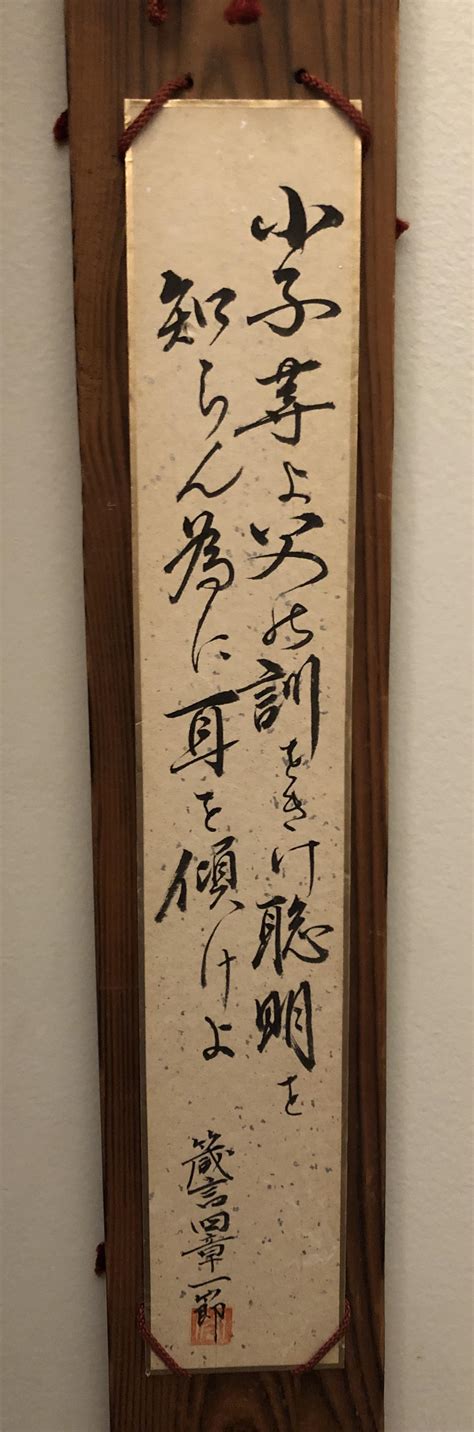 小子等よ父の訓をきけ聡明を
知らん為に耳を傾けよ
箴言四章一節